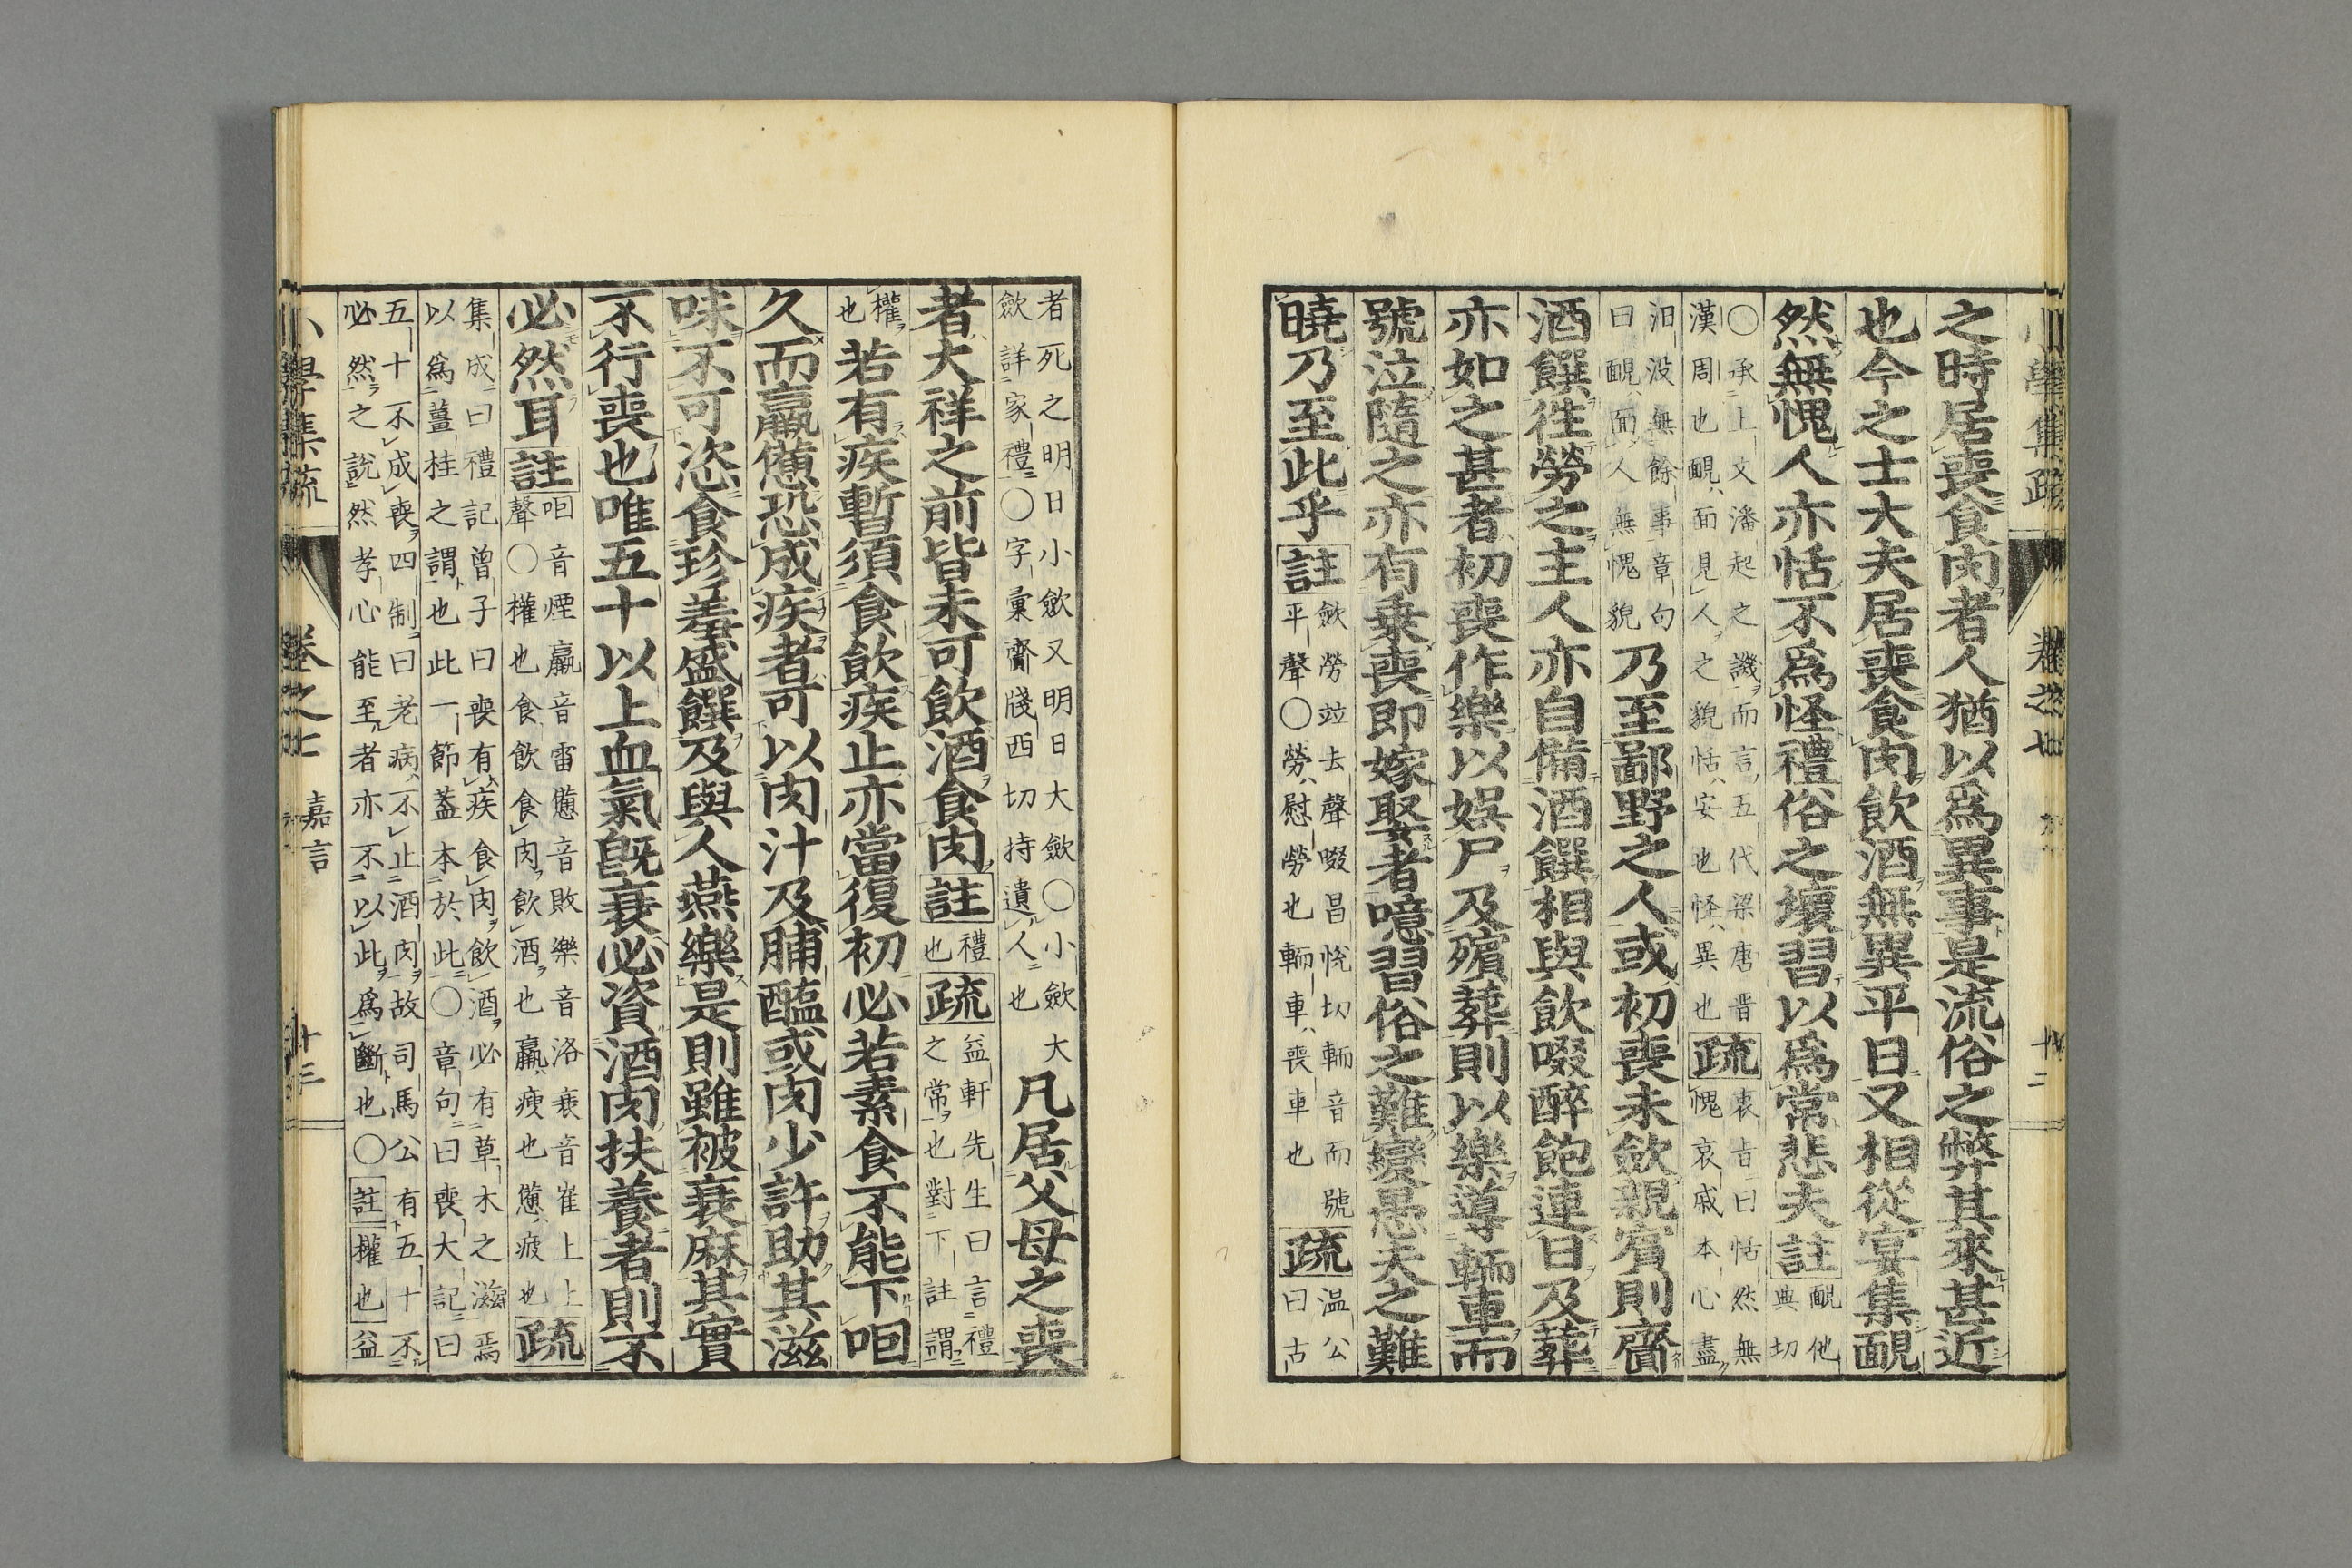 之時居喪食肉者人猶以爲異事是流俗之弊其來甚近
也今之士大夫居喪食肉飲酒無異平日又相從宴集靦
然無愧人亦恬不爲怪禮俗之壞習以爲常悲夫註靦他
典切
〇承上文潘起之譏而言五代梁唐晋
漢周也靦面見人之貌恬安也怪異也疏裵旨曰恬然無
愧哀戚本心盡
汨没無餘事章句
曰靦面人無愧貌乃至鄙野之人或初喪未斂親賓則齎
酒饌徃勞之主人亦自備酒饌相與飲啜醉飽連日及葬
亦如之甚者初喪作樂以娯尸及殯葬則以樂導輀車而
號泣隨之亦有乗喪即嫁娶者噫習俗之難變愚夫之難
曉乃至此乎註斂勞竝去聲啜昌悅切輀音而號
平聲〇勞慰勞也輀車喪車也疏温公
曰古
者死之明日小斂又明日大斂〇小斂大
斂詳家禮〇字彙齎牋西切持遺人也凡居父母之喪
者大祥之前皆未可飲酒食肉註禮
也疏益軒先生曰言禮
之常也對下註謂
權
也若有疾暫須食飲疾止亦當復初必若素食不能下咽
久而羸憊恐成疾者可以肉汁及脯醢或肉少許助其滋
味不可恣食珍羞盛饌及與人燕樂是則雖被衰麻其實
不行喪也唯五十以上血氣旣衰必資酒肉扶養者則不
必然耳註咽音煙羸音雷憊音敗樂音洛衰音崔上上
聲〇權也食飲食肉飲酒也羸瘦也憊疲也疏
集成曰禮記曽子曰喪有疾食肉飲酒必有草木之滋焉
以爲薑桂之謂也此一節葢本於此〇章句曰喪大記曰
五十不成喪四制曰老病不止酒肉故司馬公有五十不
必然之說然孝心能至者亦不以此爲斷也〇註權也益
小學集疏 卷之七 嘉言 十三